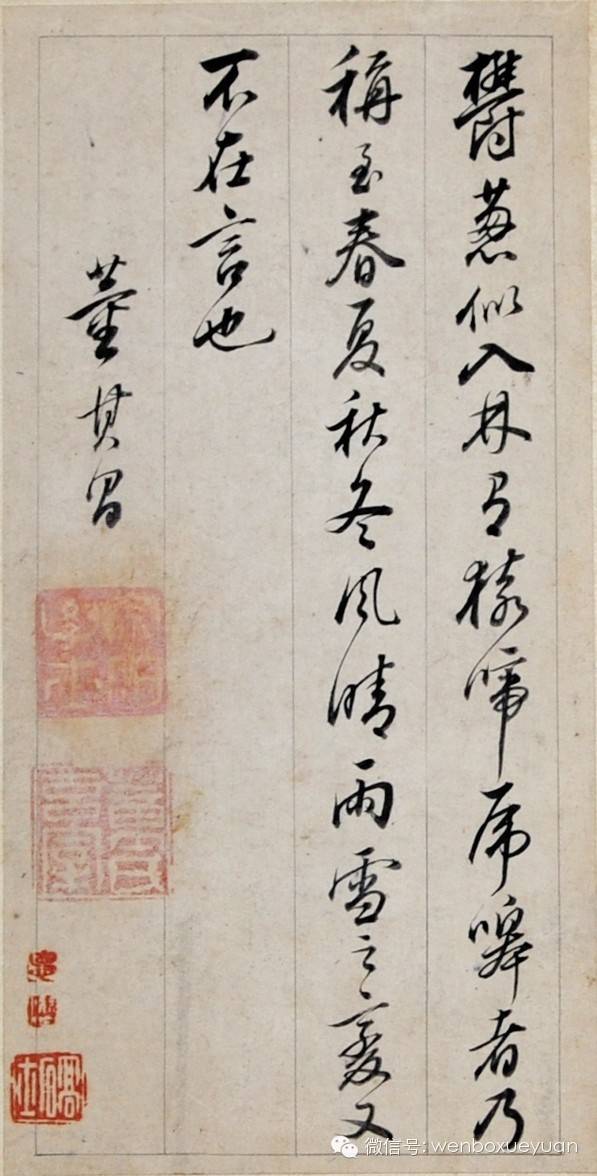 鬱葱似入林有猿啼虎嗥者乃
稱至春夏秋冬風晴雨雪之变又
不在言也
董其昌
微信号: wenboxueyuan